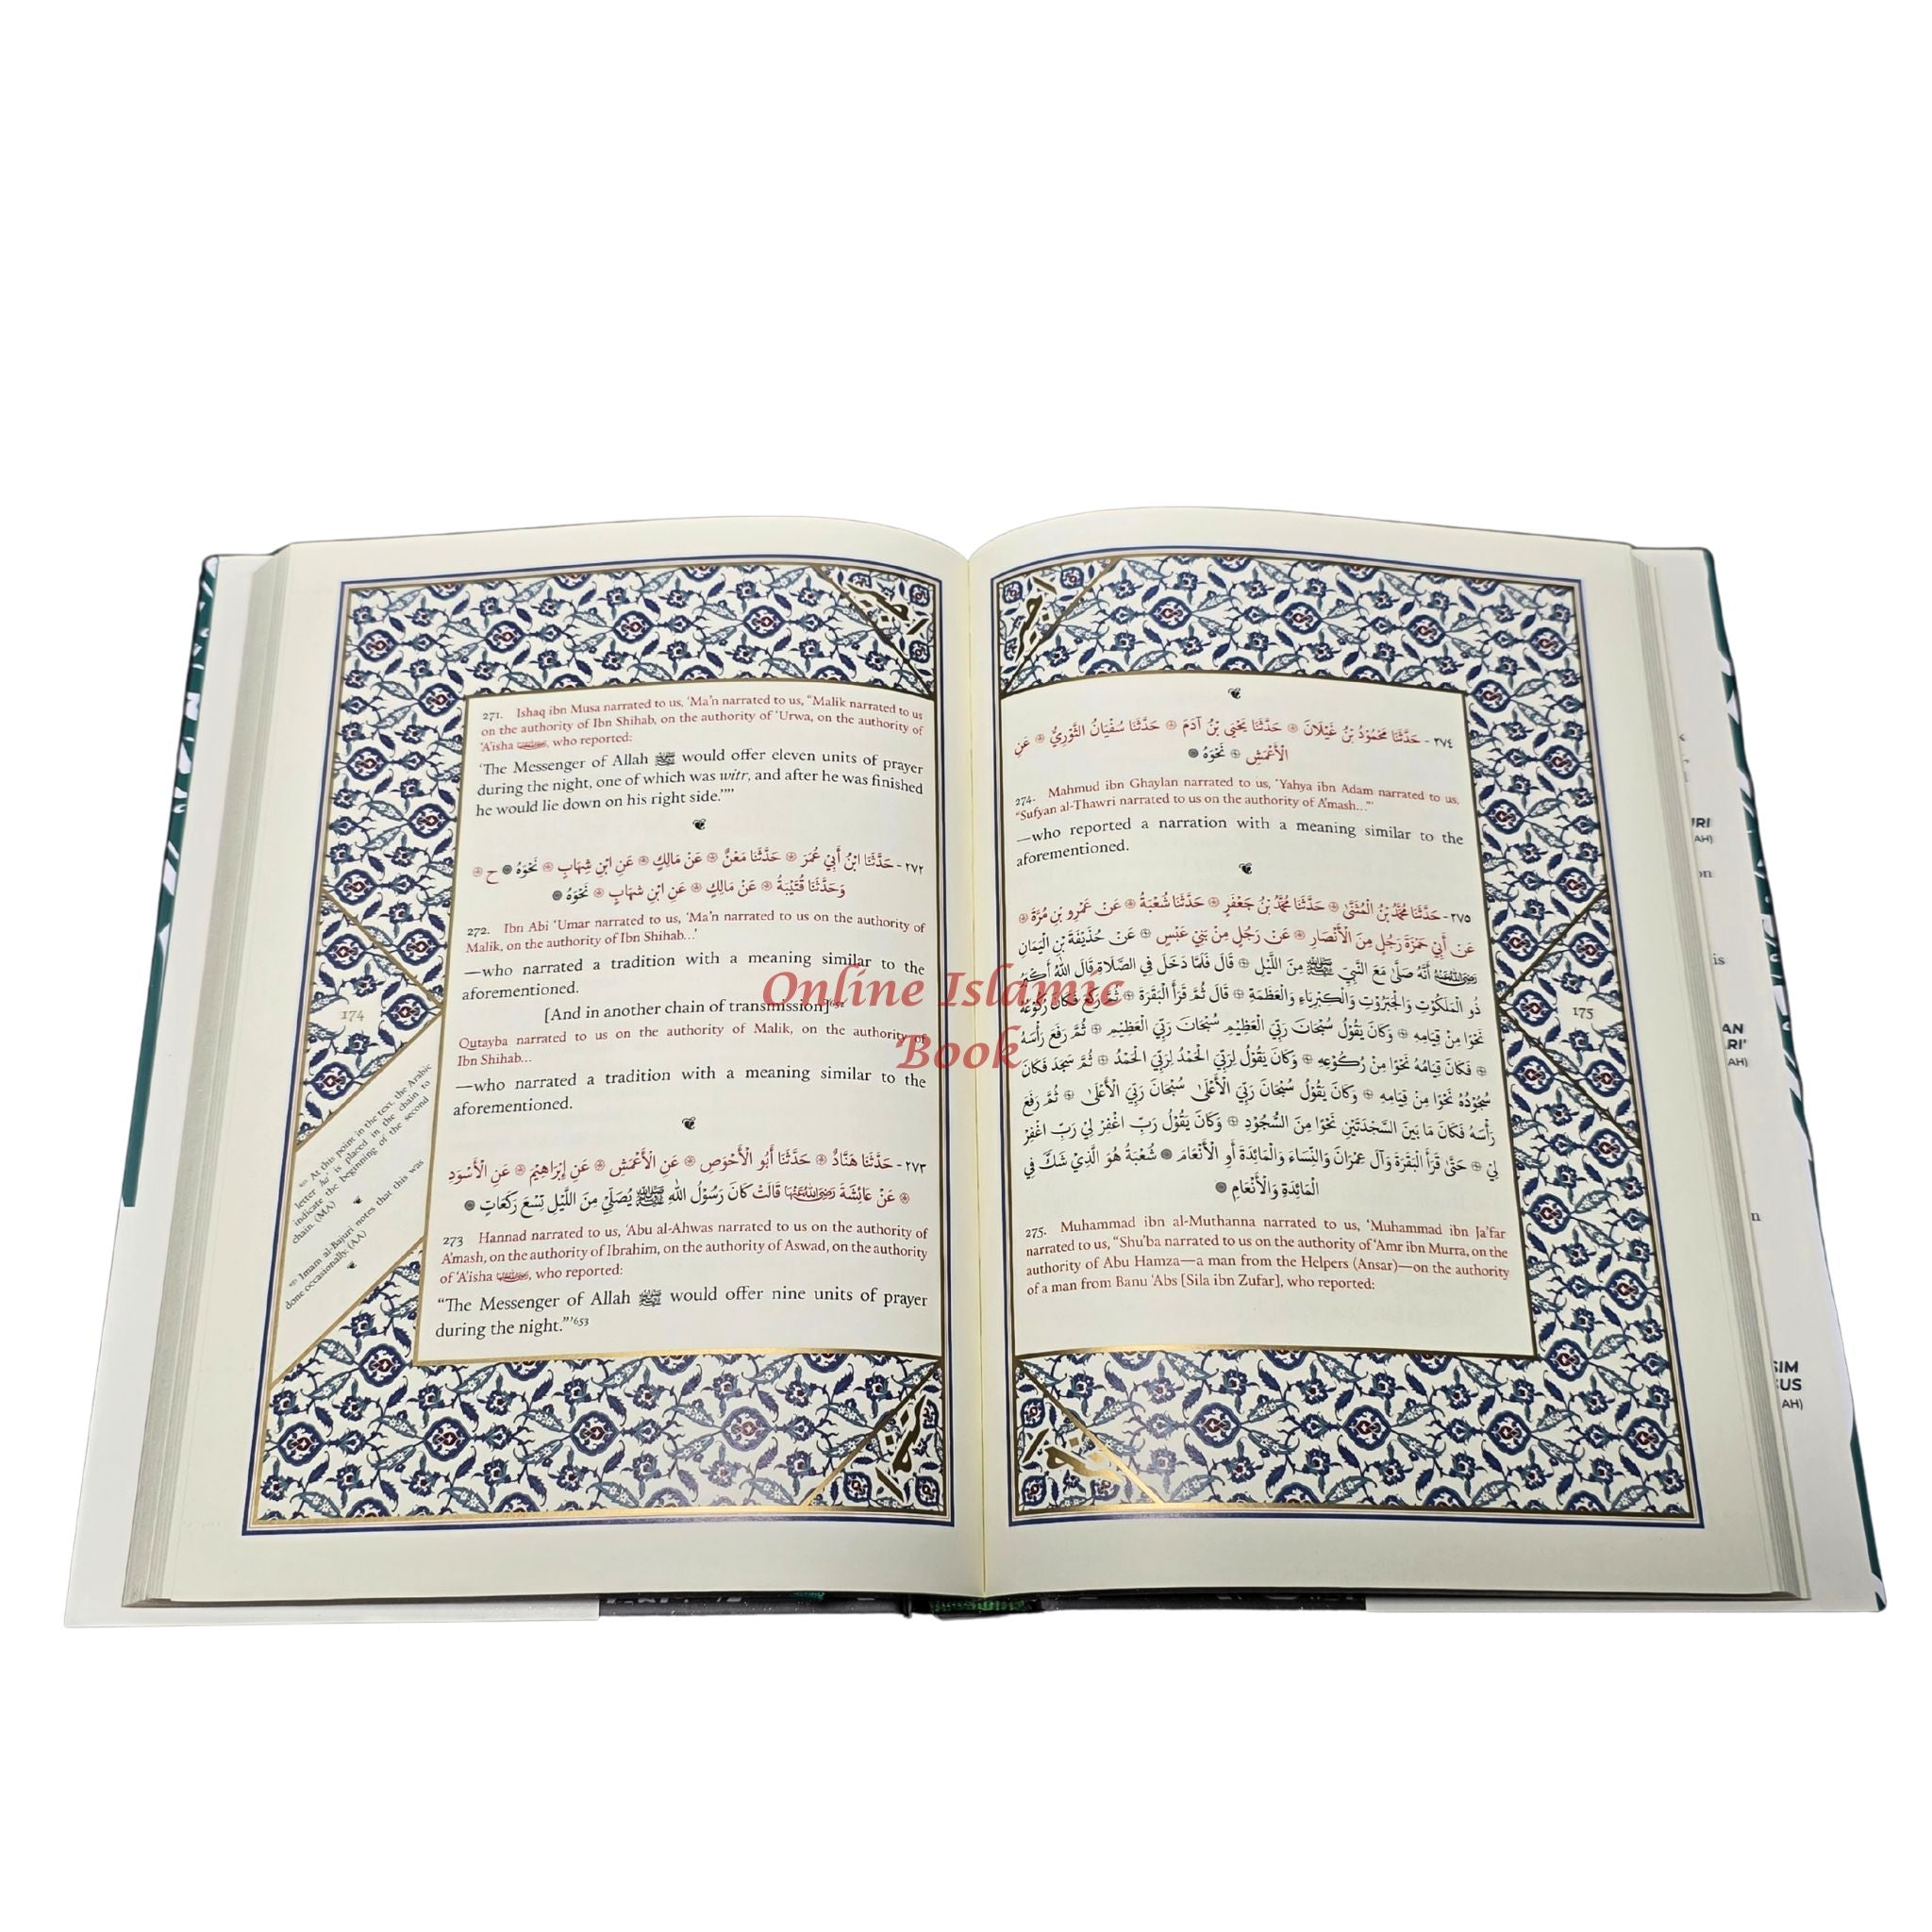 271. Ishaq ibn Musa narrated to us, ‘Ma’n narrated to us, “Malik narrated to us
on the authority of Ibn Shihab, on the authority of ‘Urwa, on the authority of
‘A’isha, who reported:
‘The Messenger of Allah ﷺ would offer eleven units of prayer
during the night, one of which was witr, and after he was finished
he would lie down on his right side.’”’
٢٧٢ - حَدَّثَنَا ابْنُ أَبِي عُمَرَ حَدَّثَنَا مَعْنٌ عَنْ مَالِكٍ عَنِ ابْنِ شِهَابٍ نَحْوَهُ ح
وَحَدَّثَنَا قُتَيْبَةُ عَنْ مَالِكٍ عَنِ ابْنِ شِهَابٍ نَحْوَهُ
272. Ibn Abi ‘Umar narrated to us, ‘Ma’n narrated to us on the authority of
Malik, on the authority of Ibn Shihab...’
—who narrated a tradition with a meaning similar to the
aforementioned.
[And in another chain of transmission]
Qutayba narrated to us on the authority of Malik, on the authority of
Ibn Shihab...
—who narrated a tradition with a meaning similar to the
aforementioned.
٢٧٣ - حَدَّثَنَا هَنَّادٌ حَدَّثَنَا أَبُو الْأَحْوَصِ عَنِ الْأَعْمَشِ عَنِ إِبْرَاهِيْمَ عَنِ الْأَسْوَدِ
عَنْ عَائِشَةَ قَالَتْ كَانَ رَسُوْلُ اللهِ ﷺ يُصَلِّيْ مِنَ اللَّيْلِ تِسْعَ رَكَعَاتٍ
273 Hannad narrated to us, ‘Abu al-Ahwas narrated to us on the authority of
A’mash, on the authority of Ibrahim, on the authority of Aswad, on the authority
of ‘A’isha, who reported:
“The Messenger of Allah ﷺ would offer nine units of prayer
during the night.”’653
174
At this point in the text, the Arabic
letter ḥa’ is placed in the chain to
indicate the beginning of the second
chain. (MA)
Imam al-Bajuri notes that this was
done occasionally. (AA)
٢٧٤ - حَدَّثَنَا مَحْمُوْدُ بْنُ غَيْلَانَ حَدَّثَنَا يَحْيَى بْنُ آدَمَ حَدَّثَنَا سُفْيَانُ الثَّوْرِيُّ عَنِ
الْأَعْمَشِ نَحْوَهُ
274. Mahmud ibn Ghaylan narrated to us, ‘Yahya ibn Adam narrated to us,
“Sufyan al-Thawri narrated to us on the authority of A’mash...”’
—who reported a narration with a meaning similar to the
aforementioned.
٢٧٥ - حَدَّثَنَا مُحَمَّدُ بْنُ الْمُثَنَّى حَدَّثَنَا مُحَمَّدُ بْنُ جَعْفَرٍ حَدَّثَنَا شُعْبَةُ عَنْ عَمْرِو بْنِ مُرَّةَ
عَنْ أَبِي حَمْزَةَ رَجُلٍ مِنَ الْأَنْصَارِ عَنْ رَجُلٍ مِنْ بَنِي عَبْسٍ عَنْ حُذَيْفَةَ بْنِ الْيَمَانِ
أَنَّهُ صَلَّى مَعَ النَّبِيِّ ﷺ مِنَ اللَّيْلِ قَالَ فَلَمَّا دَخَلَ فِي الصَّلَاةِ قَالَ اللهُ أَكْبَرُ
ذُو الْمَلَكُوْتِ وَالْجَبَرُوْتِ وَالْكِبْرِيَاءِ وَالْعَظَمَةِ قَالَ ثُمَّ قَرَأَ الْبَقَرَةَ ثُمَّ رَكَعَ فَكَانَ رُكُوْعُهُ
نَحْوًا مِنْ قِيَامِهِ وَكَانَ يَقُوْلُ سُبْحَانَ رَبِّيَ الْعَظِيْمِ سُبْحَانَ رَبِّيَ الْعَظِيْمِ ثُمَّ رَفَعَ رَأْسَهُ
فَكَانَ قِيَامُهُ نَحْوًا مِنْ رُكُوْعِهِ وَكَانَ يَقُوْلُ لِرَبِّيَ الْحَمْدُ لِرَبِّيَ الْحَمْدُ ثُمَّ سَجَدَ فَكَانَ
سُجُوْدُهُ نَحْوًا مِنْ قِيَامِهِ وَكَانَ يَقُوْلُ سُبْحَانَ رَبِّيَ الْأَعْلَى سُبْحَانَ رَبِّيَ الْأَعْلَى ثُمَّ رَفَعَ
رَأْسَهُ فَكَانَ مَا بَيْنَ السَّجْدَتَيْنِ نَحْوًا مِنَ السُّجُوْدِ وَكَانَ يَقُوْلُ رَبِّ اغْفِرْ لِيْ رَبِّ اغْفِرْ
لِيْ حَتَّى قَرَأَ الْبَقَرَةَ وَآلَ عِمْرَانَ وَالنِّسَاءَ وَالْمَائِدَةَ أَوِ الْأَنْعَامَ شُعْبَةُ هُوَ الَّذِيْ شَكَّ فِي
الْمَائِدَةِ وَالْأَنْعَامِ
275. Muhammad ibn al-Muthanna narrated to us, ‘Muhammad ibn Ja’far
narrated to us, “Shu’ba narrated to us on the authority of ‘Amr ibn Murra, on the
authority of Abu Hamza—a man from the Helpers (Ansar)—on the authority
of a man from Banu ‘Abs [Sila ibn Zufar], who reported:
175
Online Islamic
Book